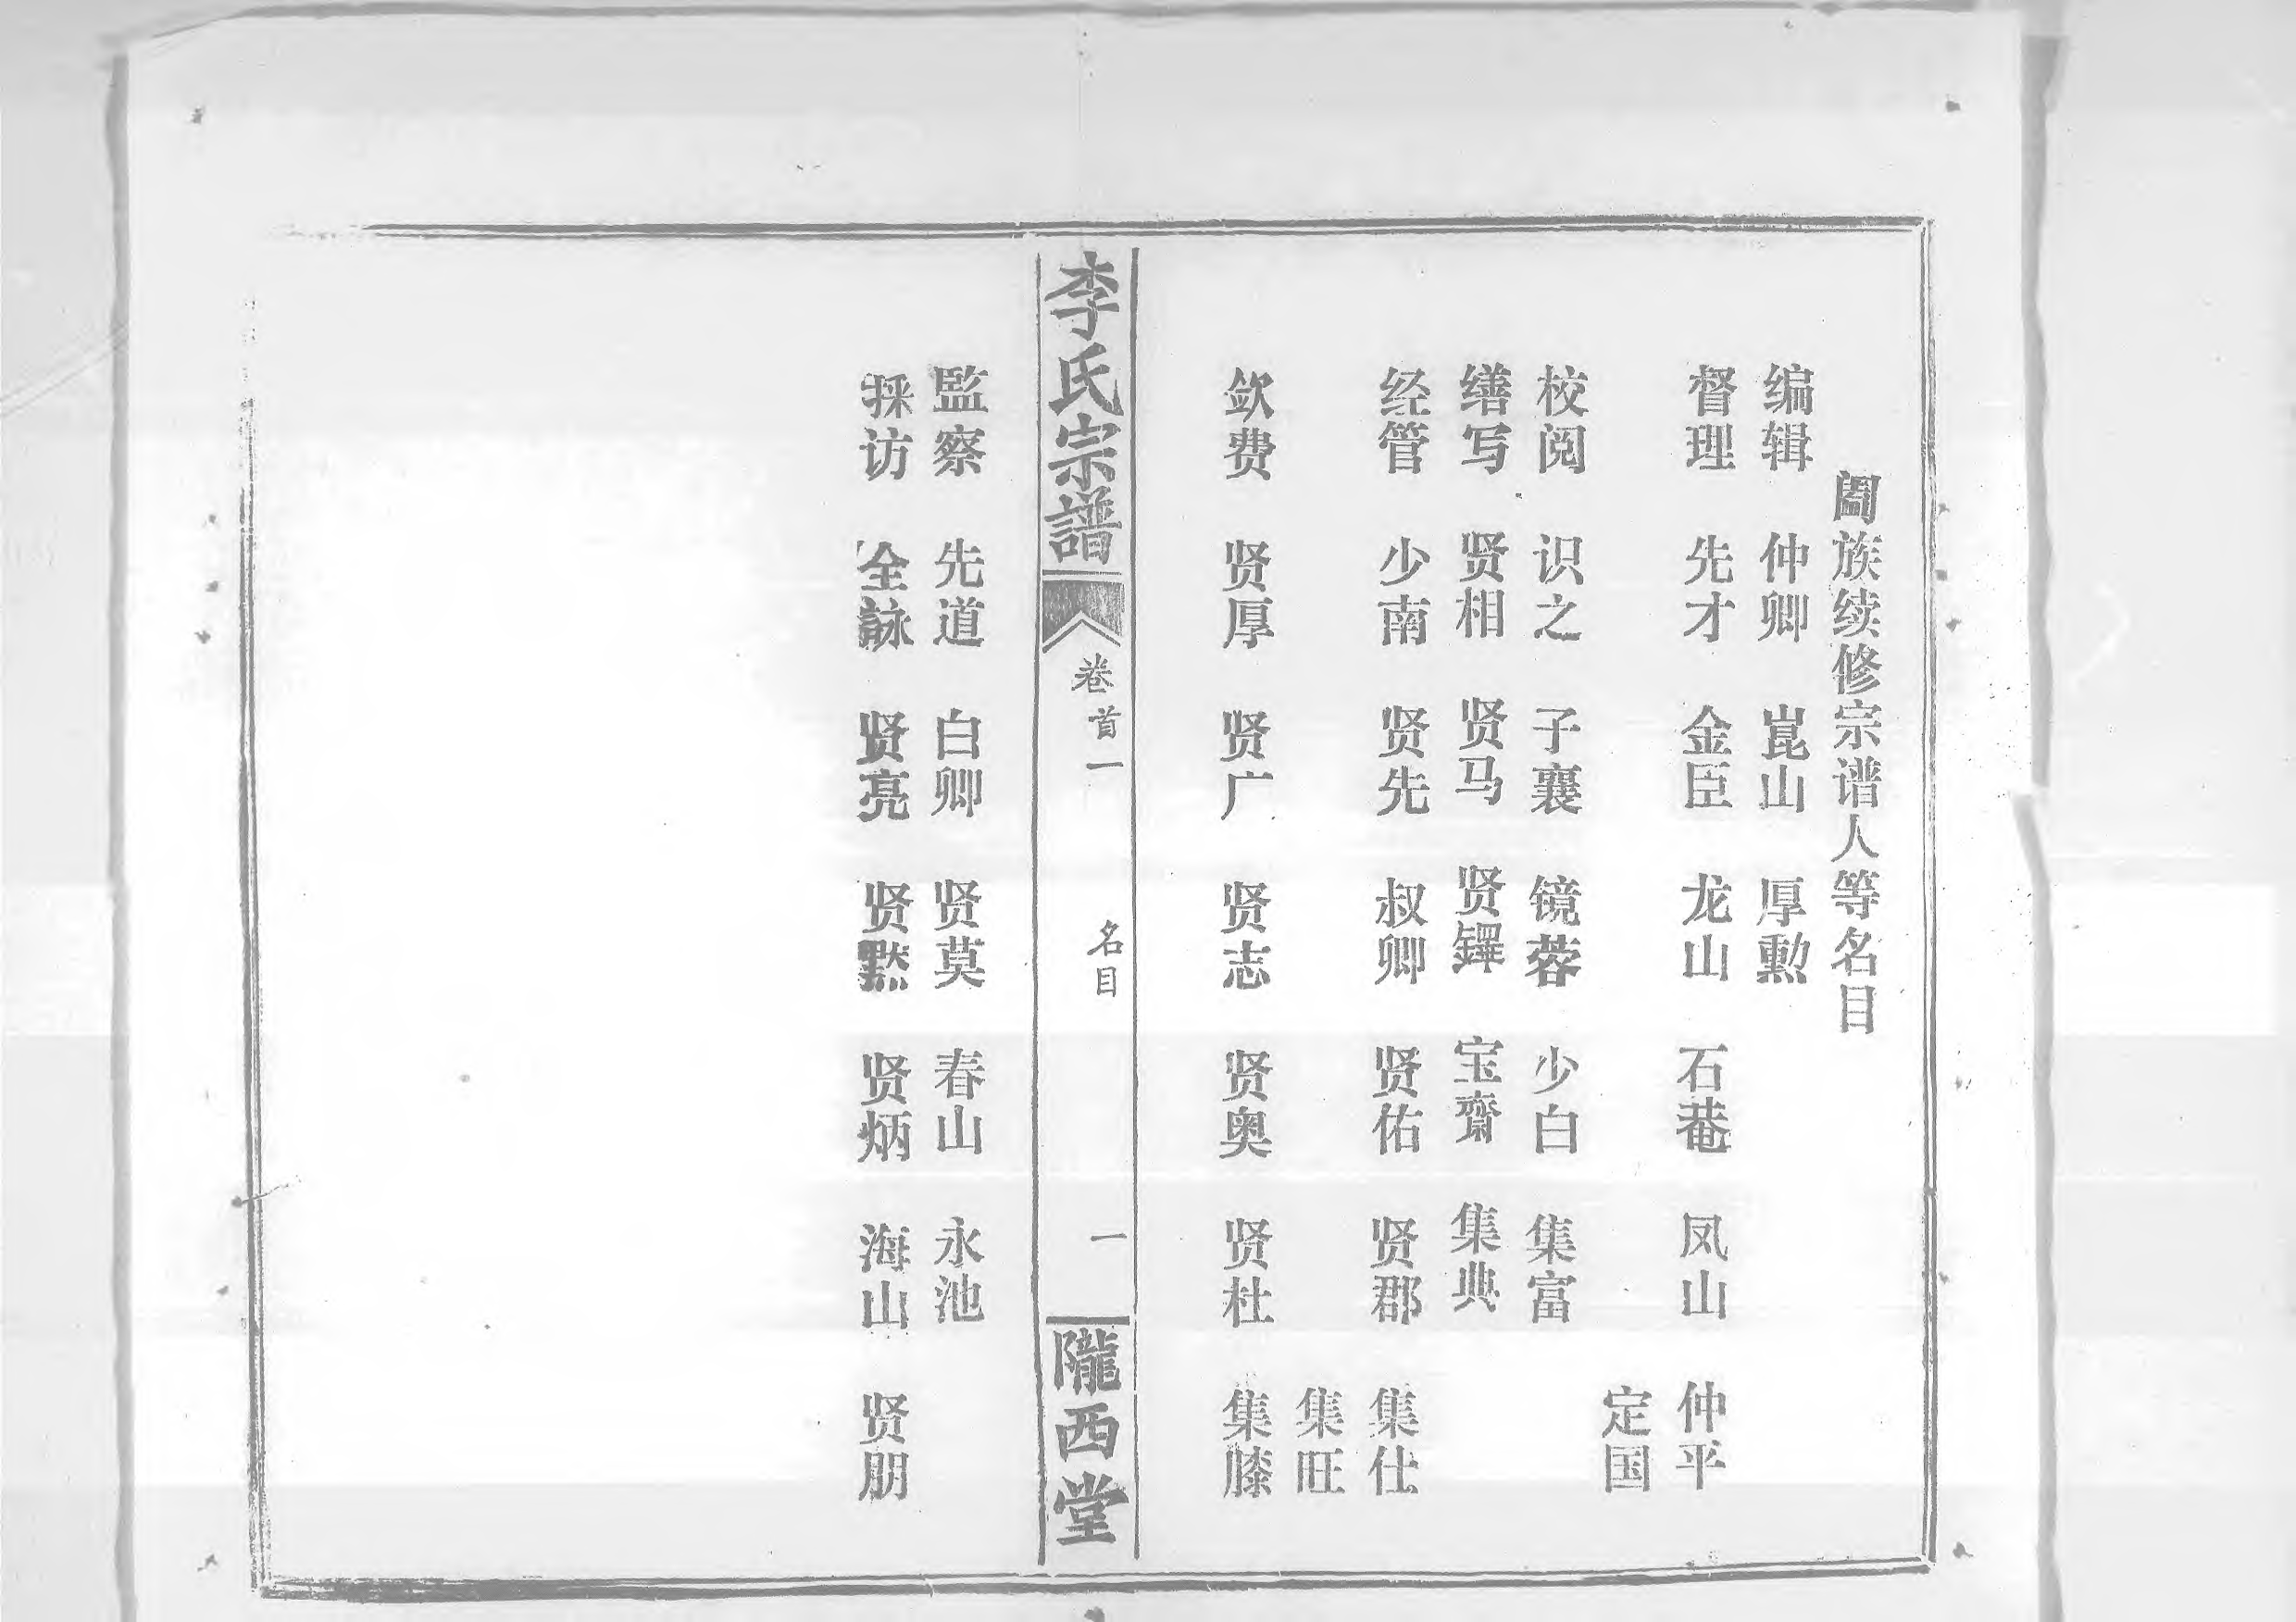 阖族续修宗谱人等名目
编辑 仲卿 崑山 厚勲
督理 先才 金臣 龙山 石菴 凤山 仲平
定国
校阅 识之 子襄 镜蓉 少白 集富
缮写 贤相 贤马 贤鐸 宝齋 集典
经管 少南 贤先 叔卿 贤佑 贤郡 集仕
集旺
敛费 贤厚 贤广 贤志 贤奥 贤杜 集膝
李氏宗譜 卷首一 名目 一 隴西堂
監察 先道 白卿 贤莫 春山 永池
採访 全詠 贤亮 贤黙 贤炳 海山 贤朋